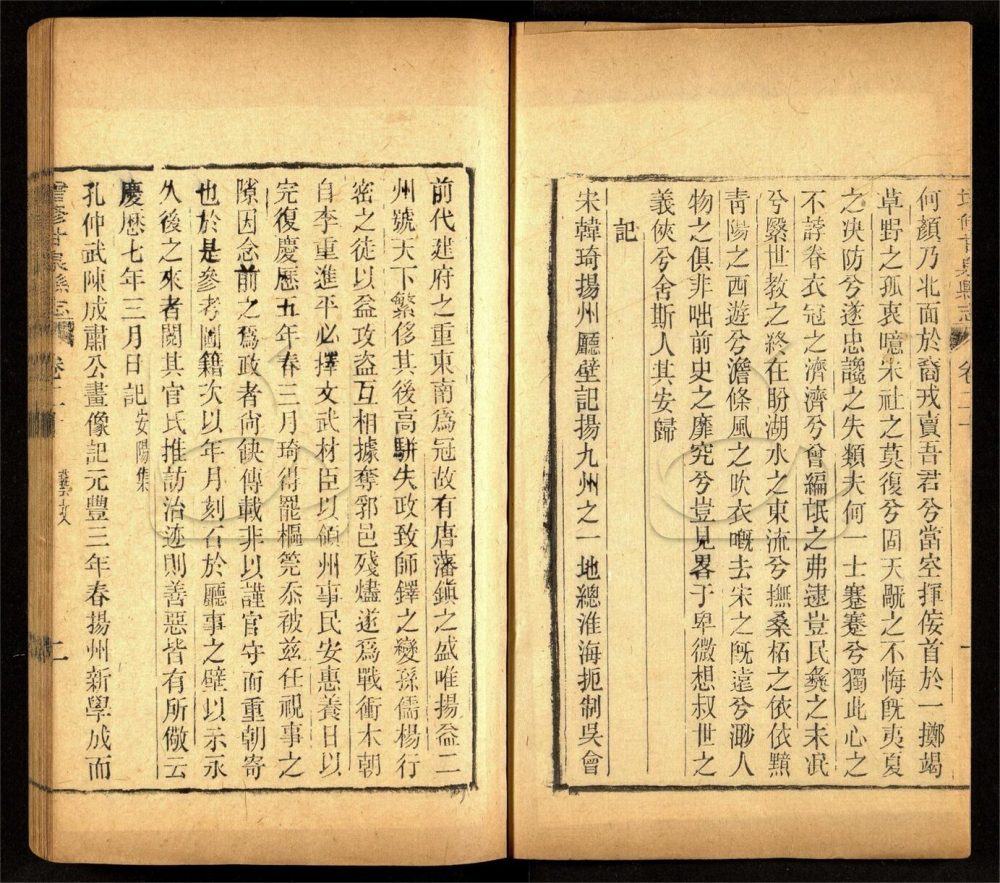 何顏乃北面於裔戎賣吾君兮當空揮侫首於一擲竭
草野之孤衷噫宋社之莫復兮固天厭之不悔旣夷夏
之决防兮遂忠讒之失類夫何一士蹇蹇兮獨此心之
不諐眷衣冠之濟濟兮曾編氓之弗逮豈民彝之未泯
兮繄世教之終在盼湖水之東流兮撫桑柘之依依黯
靑陽之西遊兮澹條風之吹衣嘅去宋之旣遠兮渺人
物之俱非咄前史之靡究兮豈見畧于卑微想叔世之
義俠兮舍斯人其安歸
記
宋韓琦揚州廳壁記揚九州之一地總淮海扼制吳會
前代建府之重東南爲冠故有唐藩鎭之盛唯揚益二
州號天下繁侈其後高駢失政致師鐸之變孫儒楊行
密之徒以盜攻盜互相據奪郛邑殘燼遂爲戰衝本朝
自李重進平必擇文武材臣以領州事民安惠養日以
完復慶厯五年春三月琦得罷樞筦忝被兹任視事之
隙因念前之爲政者尙缺傳載非以謹官守而重朝寄
也於是參考圖籍次以年月刻石於廳事之壁以示永
久後之來者閱其官氏推訪治迹則善惡皆有所儆云
慶厯七年三月日記安陽集
孔仲武陳成肅公畫像記元豐三年春揚州新學成而
卷二十
藝文
二